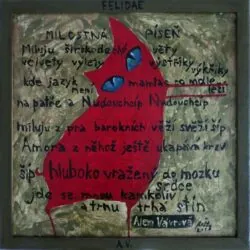 FELIDAE
MILOSTNÁ PÍSEŇ
Miluju širokodeché věty
velvety výlety výstřiky výkřiky
kde jazyk není maniac co mele
leží
na patře a Nudouchcip Nudouchcip
miluju z pra barokních věží svěží šíp
Amora z něhož ještě ukapává krev
šíp hluboko vražený do mozku
srdce
jde se mnou kamkoliv
a trnu trhá stín
Alen Vávrová
A.V.